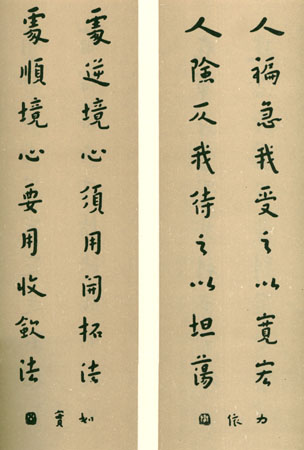 人褊急我受之以寬宏
人險仄我待之以坦蕩
力依
處逆境心須用開拓法
處順境心要用收歛法
如實